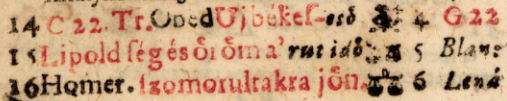 14 C 22. Tr. Obed Uj békeſ- eső 4 G 22
15 Lipold ſég és öröm a' rut idő 5 Blanc
16 Homer. ſzomorultakra jőn. 6 Lená